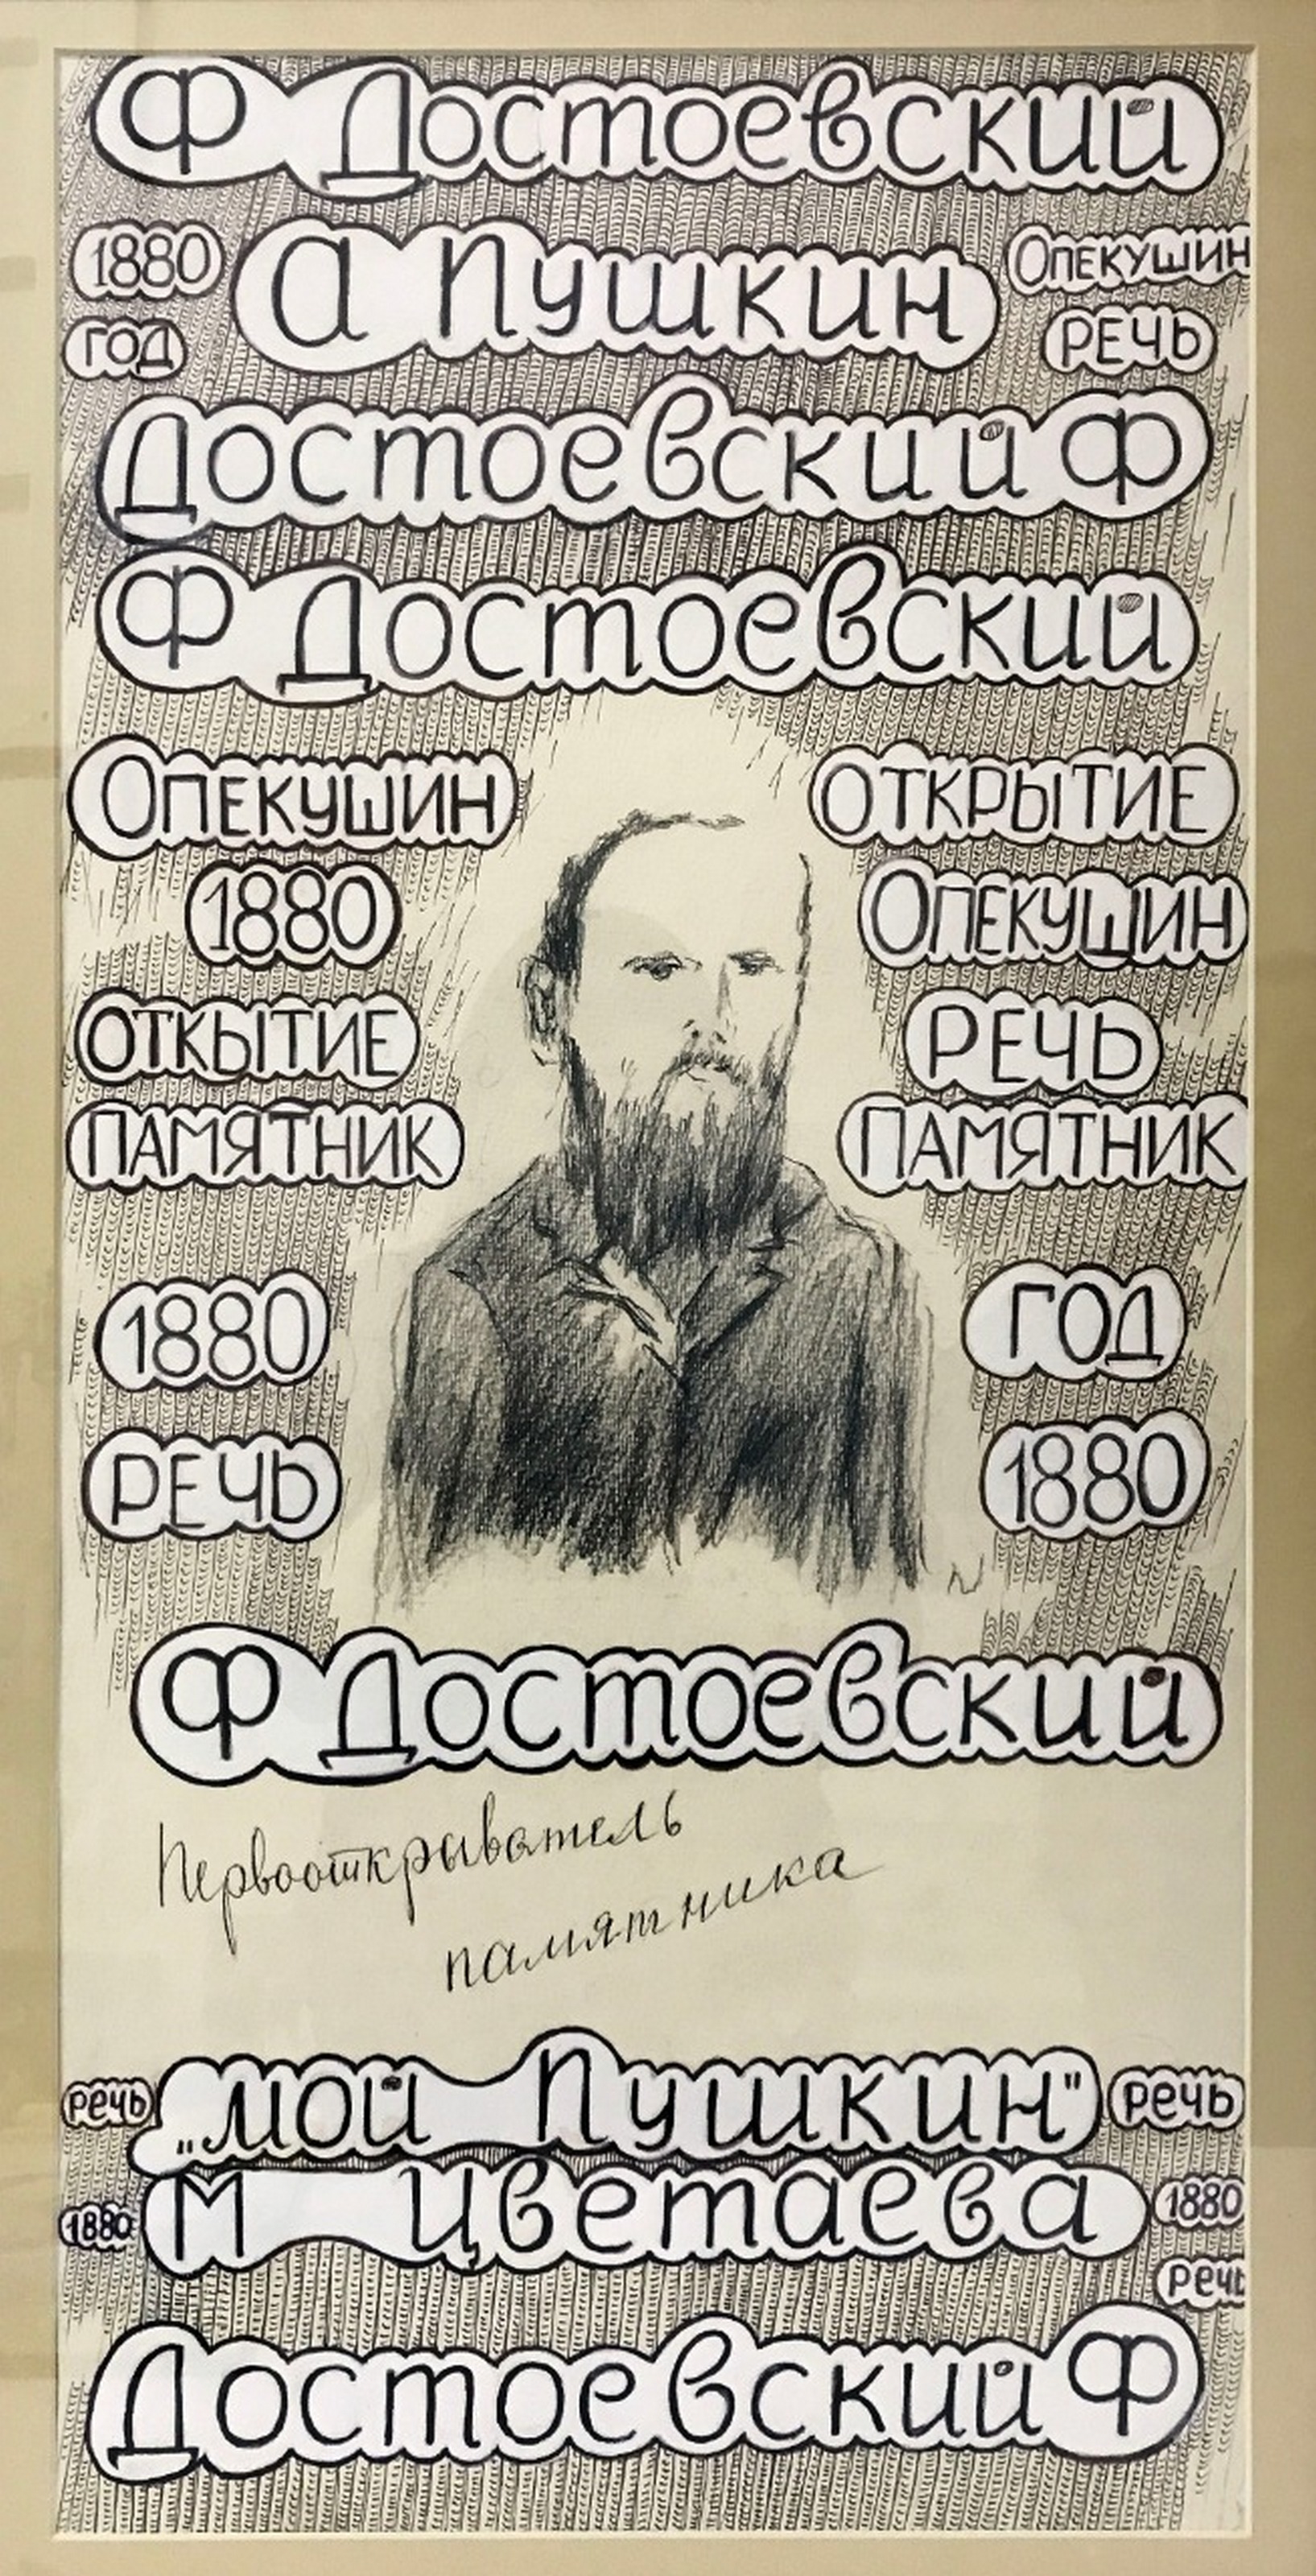 Ф Достоевский
1880 А Пушкин Опекушин
год РЕЧЬ
Достоевский Ф
Ф Достоевский
Опекушин ОТКРЫТИЕ
1880 Опекушин
ОТКЫТИЕ РЕЧЬ
ПАМЯТНИК ПАМЯТНИК
1880 ГОД
РЕЧЬ 1880
Ф Достоевский
Первооткрыватель
памятника
речь „мой Пушкин" речь
1880 М Цветаева 1880
речь
Достоевский Ф